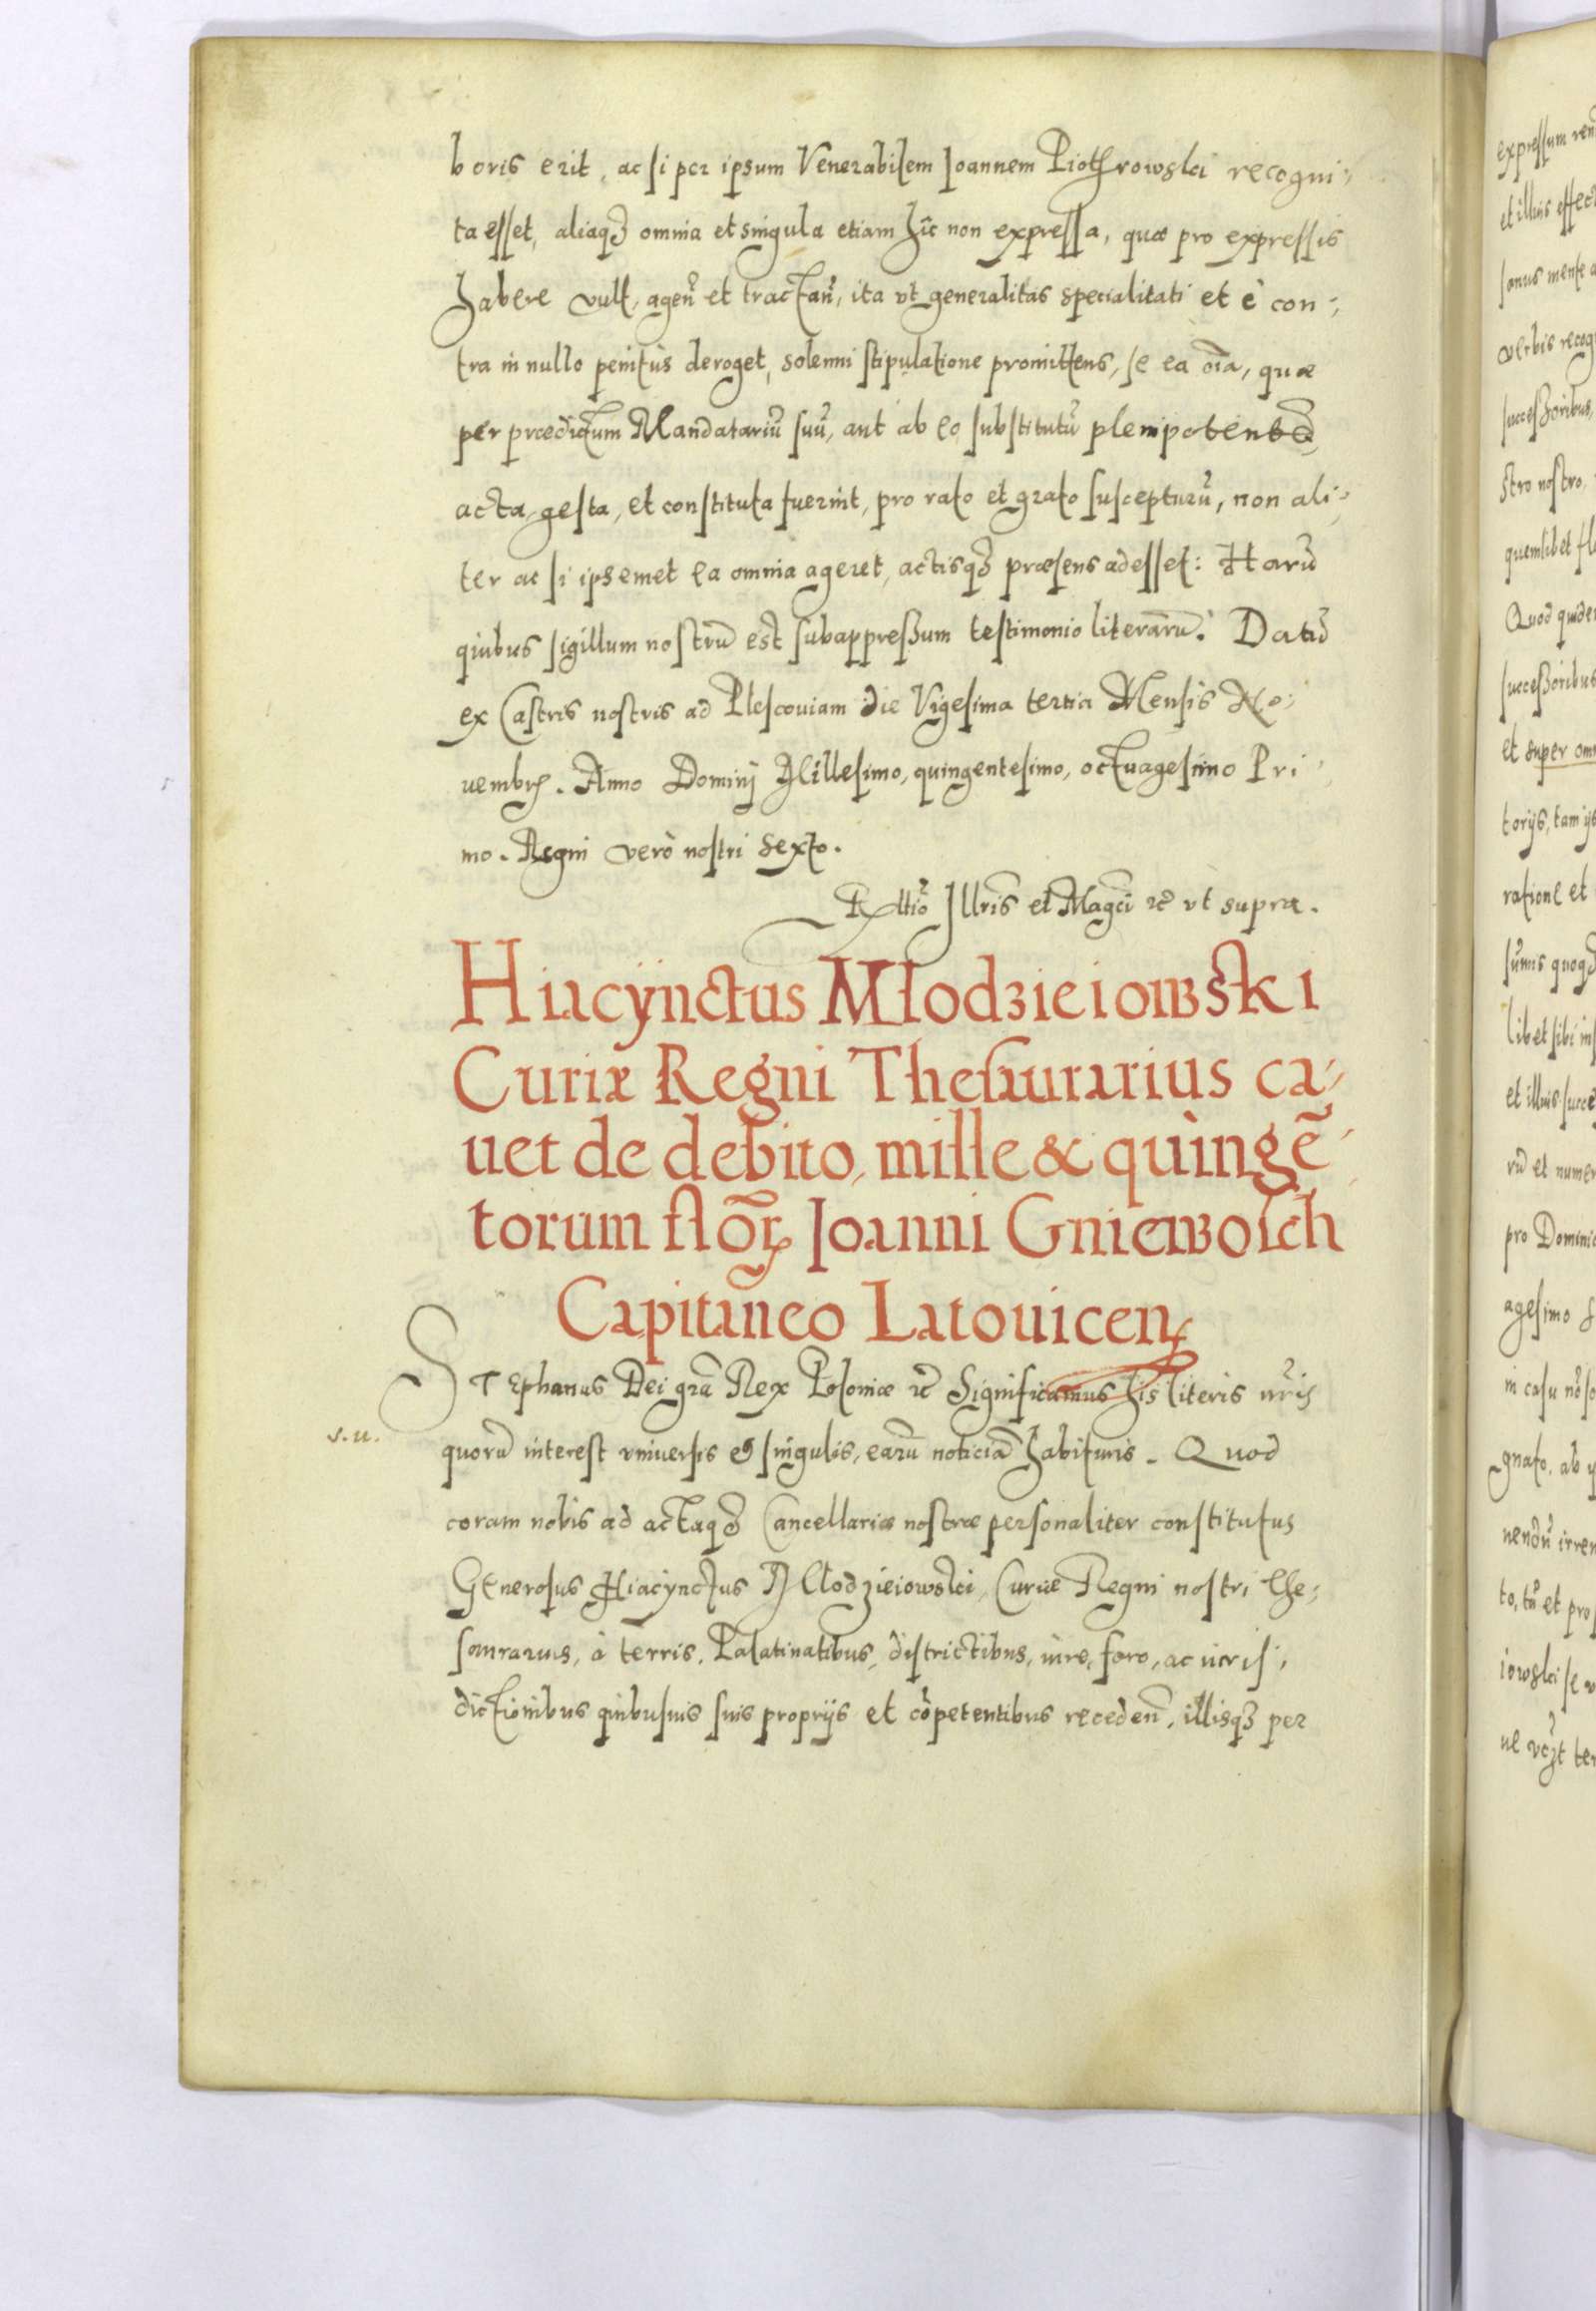 boris erit, ac si per ipsum Venerabilem Joannem Piothrowski recogni-
ta esset, aliaqȝ omnia et singula etiam hîc non expressa, quæ pro expressis
habere vult, agen̄ et tractan̄, ita vt generalitas specialitati et è con-
tra in nullo penitùs deroget, solenni stipulatione promittens, se ea o͞ia, quæ
per prædictum Mandatariū suū, aut ab eo substitutū plenipotentē
acta, gesta, et constituta fuerint, pro rato et grato suscepturū, non ali-
ter ac si ipsemet ea omnia ageret, actisqȝ præsens adesset: Harū
quibus sigillum nostrū est subappressum testimonio literarū. Datū
ex Castris nostris ad Plescouiam die Vigesima tertia Mensis No-
uembrꝭ. Anno Dominij Millesimo, quingentesimo, octuagesimo Pri-
mo. Regni verò nostri Sexto.
Illr̄is et Mag̃ci ꝛc̃ vt supra.
Hiacÿnctus Młodzieiowski
Curiæ Regni Thesaurarius ca-
uet de debito, mille & quingē-
torum flõꝝ Joanni Gniewosch
Capitaneo Latouicenꝭ
Stephanus Dei gr̃a Rex Poloniæ ꝛc̃ Significamus his literis nr̃is
s.u.
quorū interest vniuersis et singulis, earū noticiā habituris. Quod
coram nobis ad actaqȝ Cancellariæ nostræ personaliter constitutus
Generosus Hiacÿnctus Mlodzieiowski, Curiæ Regni nostri The-
saurarius, à terris, Palatinatibus, districtibus, iure, foro, ac iuris-
dictionibus quibusuis suis proprijs et cōpetentibus receden̄, illisqȝ per
expressum
et illius
sanus mente
verbis
successoribus,
stro nostro,
quemlibet
Quod
successoribus
et super
torijs, tam
ratione et
quoqȝ
libet sibi
et illius
et
pro
agesimo
in casu
gnato, ab
irre
to, tū et
se